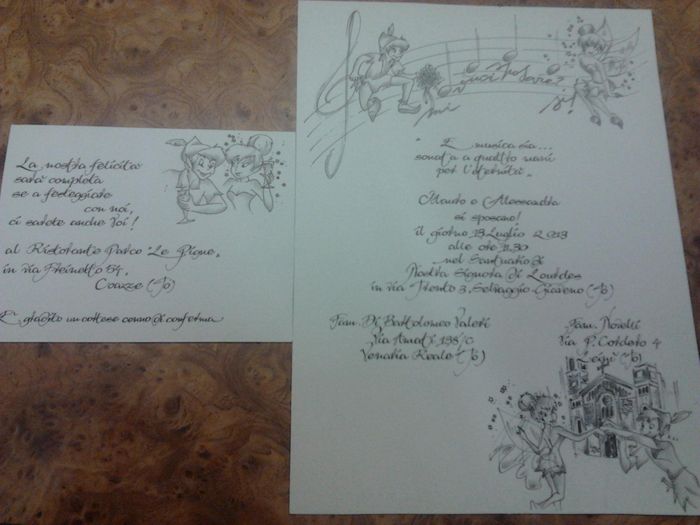 La nostra felicità
sarà completa
se a festeggiare
con noi,
ci sarete anche Voi!
al Ristorante Parco "Le Pigne"
in via Prinello 54,
Coazze (To)
E' gradito un cortese cenno di conferma
mi vuoi sposare?
si!
"E musica sia...
suonata a quattro mani
per l'eternità"
Mauro e Alessandra
si sposano!
il giorno 13 Luglio 2013
alle ore 11.30
nel Santuario di
Nostra Signora di Lourdes
in via Trento 3, Selvaggio Giaveno (To)
Fam. Di Bartolomeo Valeri
Via Amati 138/C
Venaria Reale (To)
Fam. Novelli
Via P. Cordero 4
(To)